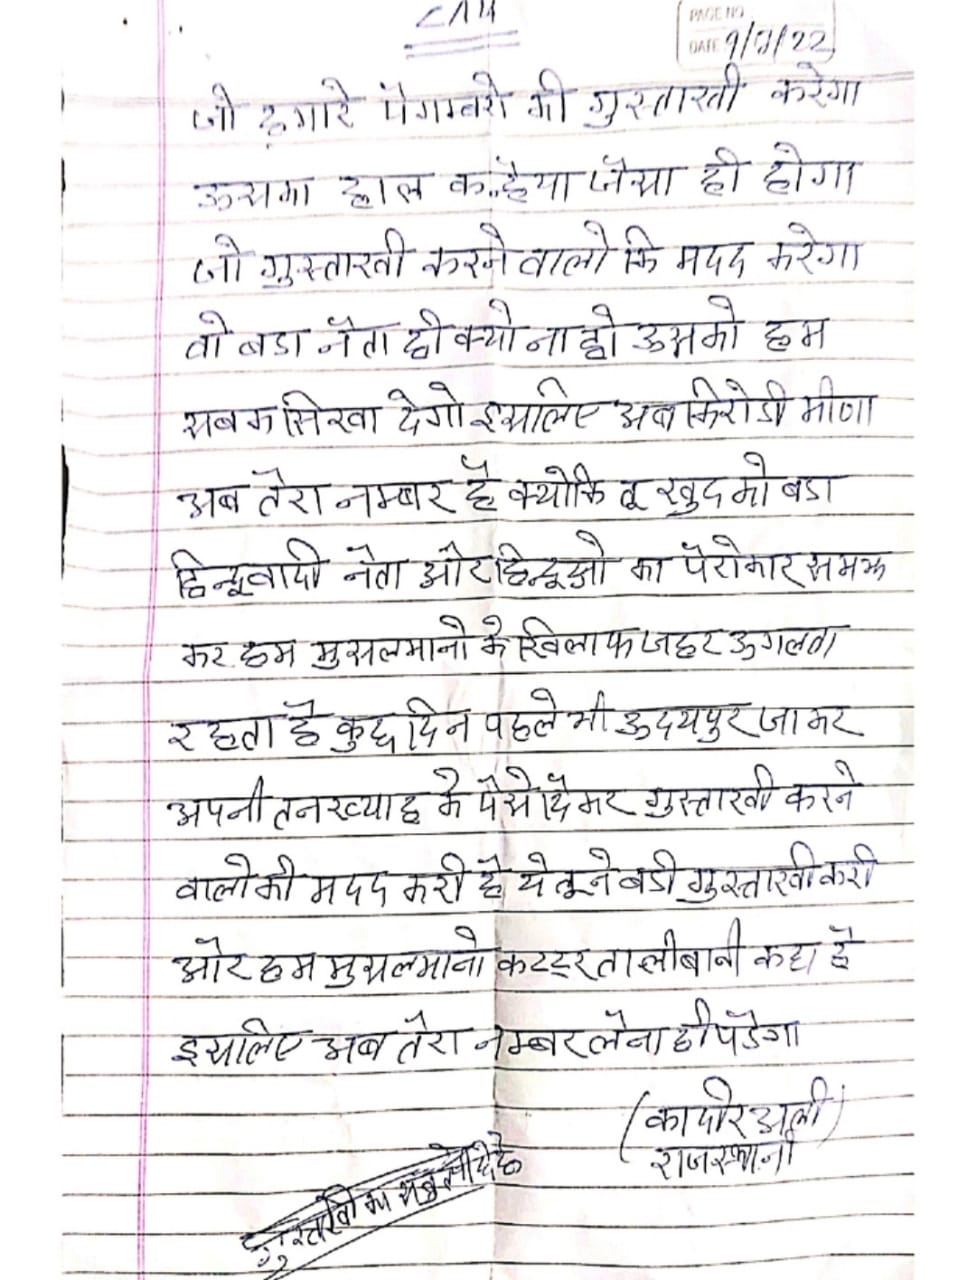 PAGE NO
DATE 9/7/22
जो हमारे पैगम्बरो की गुस्ताखी करेगा
ऊसका हाल कन्हैया जैसा ही होगा
जो गुस्ताखी करने वालो कि मदद करेगा
वो बडा नेता ही क्यो ना हो उसको हम
सबक सिखा देगो इसलिए अब किरोडी मीणा
अब तेरा नम्बर है क्योकि तू खुद को बडा
हिन्दूवादी नेता और हिन्दूओ का पैरोकार समझ
कर हम मुसलमानो के खिलाफ जहर ऊगलता
रहता है कुछ दिन पहले भी उदयपुर जाकर
अपनी तनख्याह के पैसे देकर गुस्ताखी करने
वालो की मदद करी है ये तूने बडी गुस्ताखी करी
और हम मुसलमानो कटटर तालीबानी कहा है
इसलिए अब तेरा नम्बर लेना ही पडेगा
(कादीर अली)
राजस्थानी